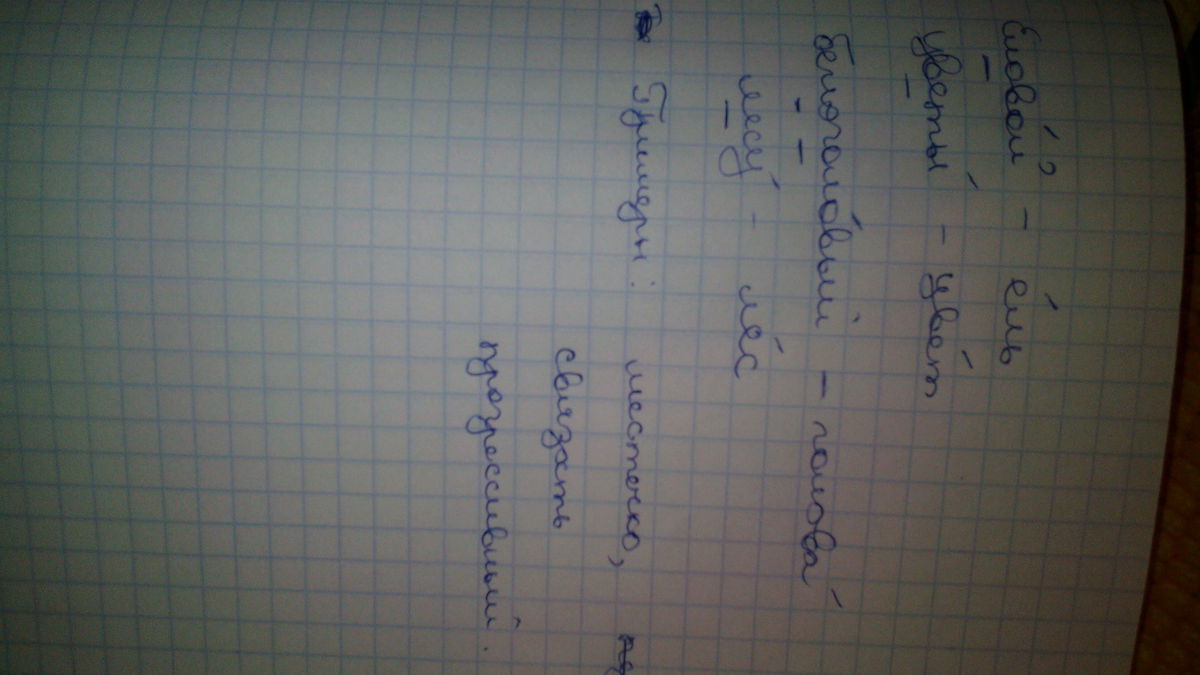 Еловой – ель
цветы́ – цве́т
белоголо́вый – голова́
лесу́ – ле́с
Примеры: местечко,
связать
прогрессивный.